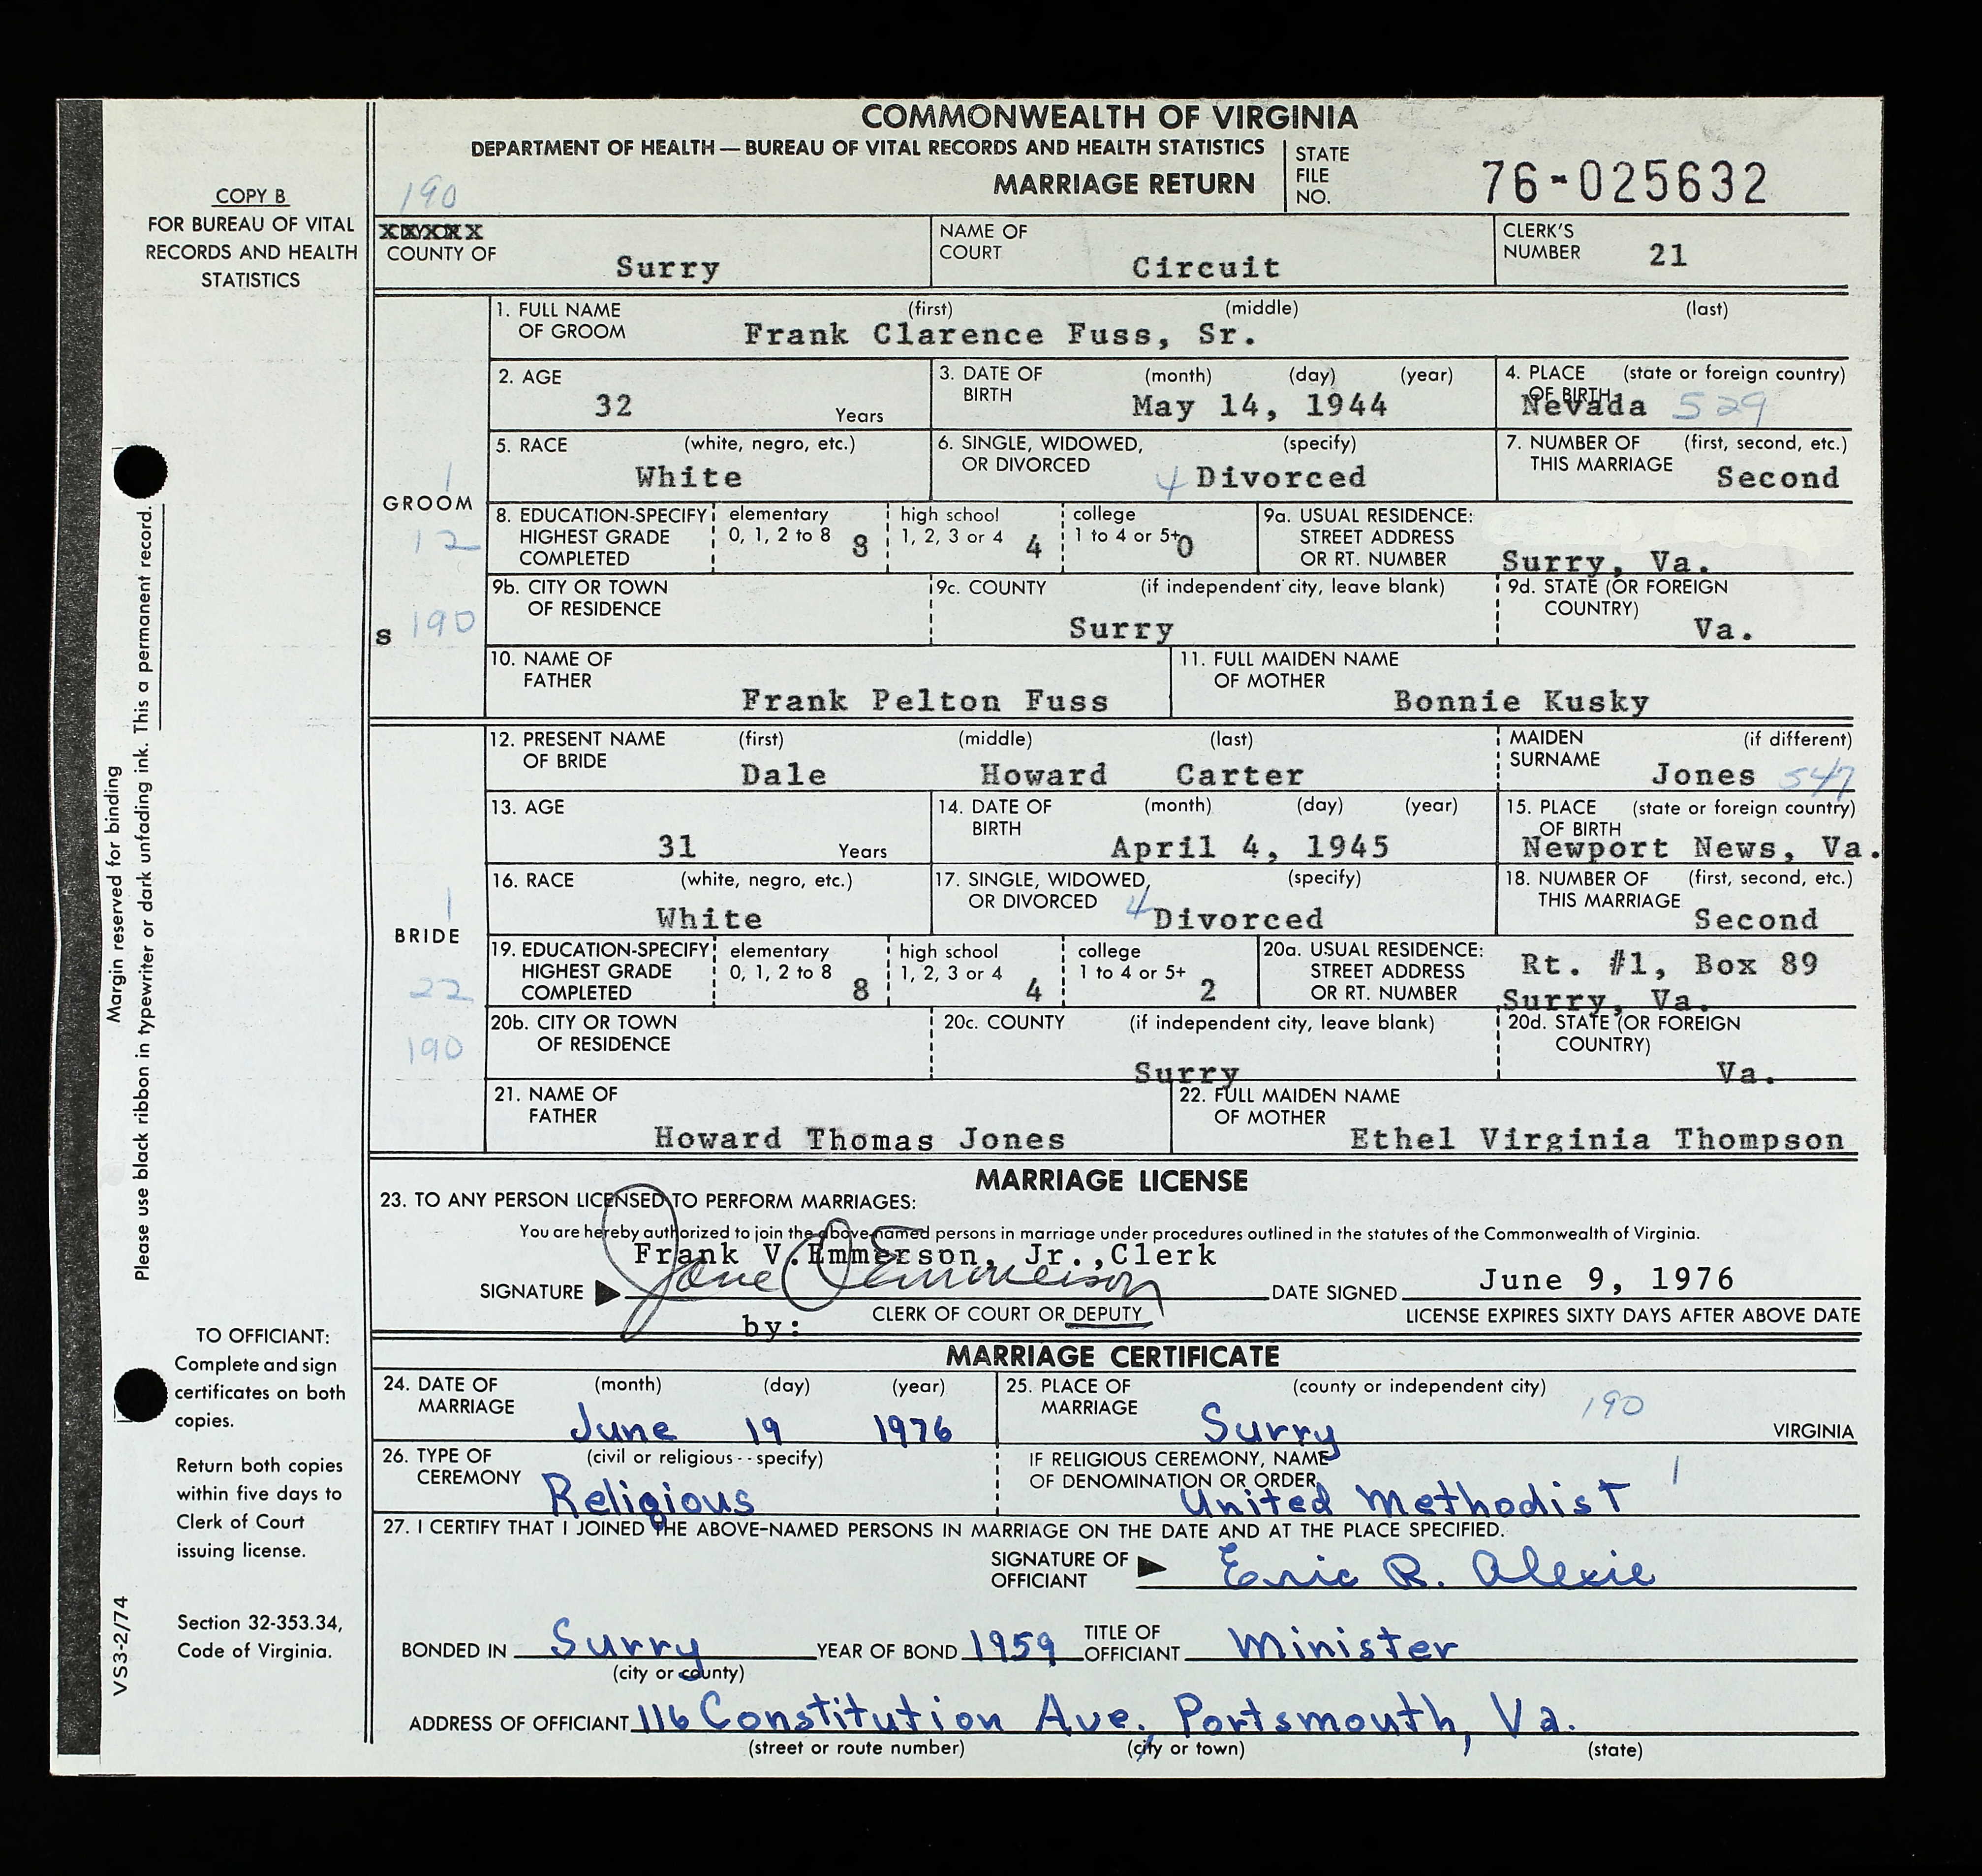 COMMONWEALTH OF VIRGINIA
DEPARTMENT OF HEALTH — BUREAU OF VITAL RECORDS AND HEALTH STATISTICS
MARRIAGE RETURN
STATE FILE NO. 76-025632
COPY B
FOR BUREAU OF VITAL
RECORDS AND HEALTH
STATISTICS
190
XXXXX
COUNTY OF Surry
NAME OF COURT Circuit
CLERK'S NUMBER 21
GROOM
1
12
S 190
1. FULL NAME OF GROOM (first) (middle) (last)
Frank Clarence Fuss, Sr.
2. AGE 32 Years
3. DATE OF BIRTH (month) (day) (year)
May 14, 1944
4. PLACE OF BIRTH (state or foreign country)
Nevada 529
5. RACE (white, negro, etc.)
White
6. SINGLE, WIDOWED, OR DIVORCED (specify)
4 Divorced
7. NUMBER OF THIS MARRIAGE (first, second, etc.)
Second
8. EDUCATION-SPECIFY HIGHEST GRADE COMPLETED
elementary 0, 1, 2 to 8 8
high school 1, 2, 3 or 4 4
college 1 to 4 or 5+ 0
9a. USUAL RESIDENCE: STREET ADDRESS OR RT. NUMBER
Surry, Va.
9b. CITY OR TOWN OF RESIDENCE
9c. COUNTY (if independent city, leave blank)
Surry
9d. STATE (OR FOREIGN COUNTRY)
Va.
10. NAME OF FATHER
Frank Pelton Fuss
11. FULL MAIDEN NAME OF MOTHER
Bonnie Kusky
BRIDE
1
22
190
12. PRESENT NAME OF BRIDE (first) (middle) (last)
Dale Howard Carter
MAIDEN SURNAME (if different)
Jones 547
13. AGE 31 Years
14. DATE OF BIRTH (month) (day) (year)
April 4, 1945
15. PLACE OF BIRTH (state or foreign country)
Newport News, Va.
16. RACE (white, negro, etc.)
White
17. SINGLE, WIDOWED, OR DIVORCED (specify)
4 Divorced
18. NUMBER OF THIS MARRIAGE (first, second, etc.)
Second
19. EDUCATION-SPECIFY HIGHEST GRADE COMPLETED
elementary 0, 1, 2 to 8 8
high school 1, 2, 3 or 4 4
college 1 to 4 or 5+ 2
20a. USUAL RESIDENCE: STREET ADDRESS OR RT. NUMBER
Rt. #1, Box 89
Surry, Va.
20b. CITY OR TOWN OF RESIDENCE
20c. COUNTY (if independent city, leave blank)
Surry
20d. STATE (OR FOREIGN COUNTRY)
Va.
21. NAME OF FATHER
Howard Thomas Jones
22. FULL MAIDEN NAME OF MOTHER
Ethel Virginia Thompson
MARRIAGE LICENSE
23. TO ANY PERSON LICENSED TO PERFORM MARRIAGES:
You are hereby authorized to join the above-named persons in marriage under procedures outlined in the statutes of the Commonwealth of Virginia.
Frank V.Emmerson, Jr.,Clerk
SIGNATURE Jane Emmerson DATE SIGNED June 9, 1976
by: CLERK OF COURT OR DEPUTY
LICENSE EXPIRES SIXTY DAYS AFTER ABOVE DATE
MARRIAGE CERTIFICATE
24. DATE OF MARRIAGE (month) (day) (year)
June 19 1976
25. PLACE OF MARRIAGE (county or independent city)
Surry 190 VIRGINIA
26. TYPE OF CEREMONY (civil or religious--specify)
Religious
IF RELIGIOUS CEREMONY, NAME OF DENOMINATION OR ORDER
United Methodist 1
27. I CERTIFY THAT I JOINED THE ABOVE-NAMED PERSONS IN MARRIAGE ON THE DATE AND AT THE PLACE SPECIFIED.
SIGNATURE OF OFFICIANT Eric R. Alexie
BONDED IN Surry YEAR OF BOND 1959 TITLE OF OFFICIANT Minister
(city or county)
ADDRESS OF OFFICIANT 116 Constitution Ave, Portsmouth, Va.
(street or route number) (city or town) (state)
Margin reserved for binding
Please use black ribbon in typewriter or dark unfading ink. This a permanent record.
TO OFFICIANT:
Complete and sign
certificates on both
copies.
Return both copies
within five days to
Clerk of Court
issuing license.
Section 32-353.34,
Code of Virginia.
VS3-2/74